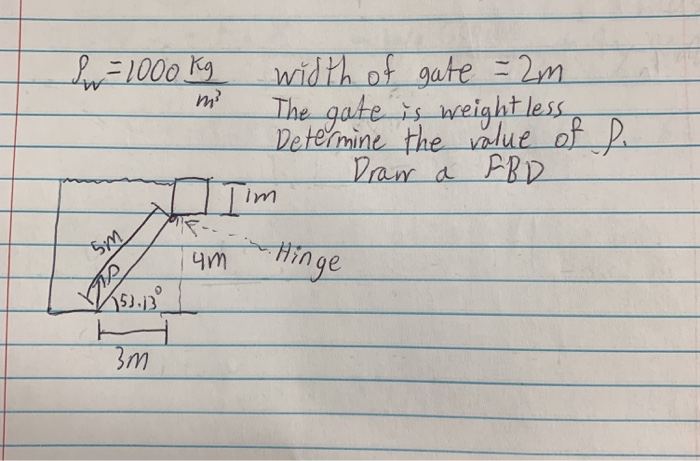 ρw = 1000 kg/m³ width of gate = 2m
The gate is weightless
Determine the value of P.
Draw a FBD
1m
5m
4m
Hinge
P
53.13°
3m